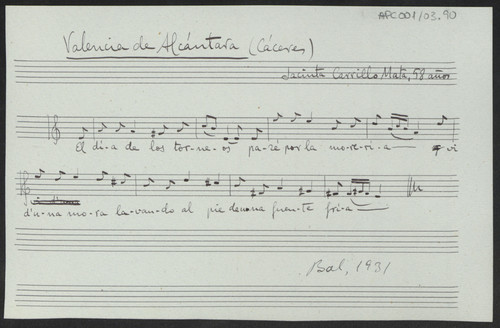 APC001/03.90
Valencia de Alcántara (Cáceres)
Jacinta Carrillo Mata, 58 años
El dí-a de los tor-ne-os pa-zé por la mo-re-rí-a vi
d'u-na mo-ra la-van-do al pie de una fuen-te frí-a
Bal, 1931